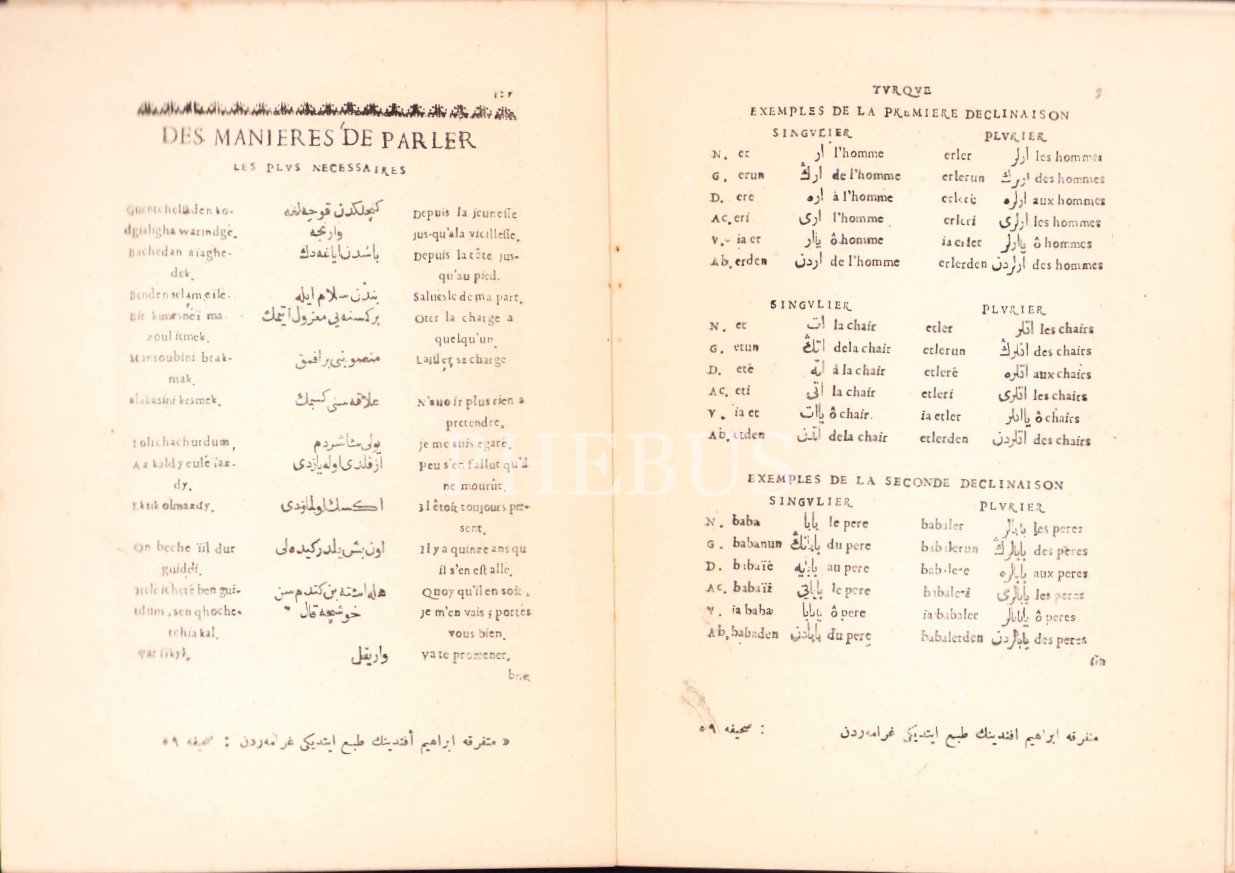 DES MANIERES DE PARLER
LES PLVS NECESSAIRES
Guentchelukden ko- كنجلكدن قوجه‌لغه Depuis la jeunesse
dgialigha warindgé, وارنجه jus-qu'ala vieillesse.
Bachedan aïaghe- باشدن اياغه‌دك Depuis la tête jus-
dek. qu'au pied.
Benden selam eïlé. بندن سلام ايله Salüesle de ma part.
Bir kimesneï ma بركسنه‌يى معزول اتيمك Oter la charge a
zoul itmek. quelqu'un.
Mansoubini brak- منصوبنى براقمق sa charge
mak.
alakasini kesmek. علاقه سنى كسمك N'auoir plus rien a
pretendre.
Iolichachurdum, يولى شاشردم Je me suis egaré.
Az kaldy eulé ïaz- از قلدى اوله‌يازدى Peu s'en fallut qu'il
dy. ne mourût.
Eksik olmazdy. اكسك اولمازدى Il êtoit toujours pre-
sent.
On beche ïil dur اون بش يلدر كيده‌لى Il y a quinze ans qu
guideli. il s'en est allé.
ben gui- هله استه بن كتدم سن Quoy qu'il en soit,
tdum, sen qhoche- خوشجه قال je m'en vais; portés
tchia kal. vous bien.
war واريقل Va te promener.
bon
« متفرقه ابراهيم أفندينك طبع ايتديكى غرامه‌ردن : صحيفه ٥٩
TVRQVE 9
EXEMPLES DE LA PREMIERE DECLINAISON
SINGVLIER PLVRIER
N. er ار l'homme erler ارلر les hommes
G. erun ارڭ de l'homme erlerun ارلرڭ des hommes
D. eré اره à l'homme erleré ارلره aux hommes
AC. eri ارى l'homme erleri ارلرى les hommes
V. ia er ياار ô homme ia erler ياارلر ô hommes
Ab. erden اردن de l'homme erlerden ارلردن des hommes
SINGVLIER PLVRIER
N. et ات la chair etler اتلر les chairs
G. etun اتڭ dela chair etlerun اتلرڭ des chairs
D. eté اته à la chair etleré اتلره aux chairs
AC. eti اتى la chair etleri اتلرى les chairs
V. ia et ياات ô chair. ia etler يااتلر ô chairs
Ab. etden اتدن dela chair etlerden اتلردن des chairs
EXEMPLES DE LA SECONDE DECLINAISON
SINGVLIER PLVRIER
N. baba بابا le pere babaler بابالر les peres
G. babanun بابانڭ du pere babalerun بابالرڭ des peres
D. babaïé بابايه au pere babalere بابالره aux peres
AC. babaïi باباتي le pere babaleri بابالرى les peres
V. ia baba يابابا ô pere ia babaler يابابالر ô peres
Ab. babaden بابادن du pere babalerden بابالردن des peres
متفرقه ابراهيم افندينك طبع ايتديكى غرامه‌ردن : صحيفه ٥٩
PHEBUS